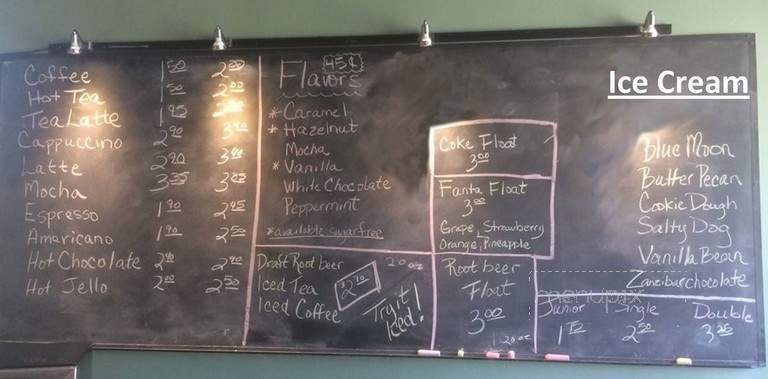 Coffee 1 50 2 00
Hot Tea 1 50 2 00
Tea Latte 1 95
Cappuccino 2 90 3 40
Latte 2 90 3 40
Mocha 3 35
Espresso 1 90 2 45
Amaricano 1 90 2 50
Hot Chocolate 2 40 2 90
Hot Jello 2 00 2 50
Flavors 45¢
* Caramel
* Hazelnut
Mocha
* Vanilla
White Chocolate
Peppermint
*available sugarfree
Draft Root beer 20 oz
Iced Tea
Iced Coffee
Try it
Iced!
Coke Float
3 00
Fanta Float
3 00
Grape, Strawberry
Orange, Pineapple
Root beer
Float
3 00
20 oz
Ice Cream
Blue Moon
Butter Pecan
Cookie Dough
Salty Dog
Vanilla Bean
Zanzibar chocolate
Junior Single Double
2 50 3 25